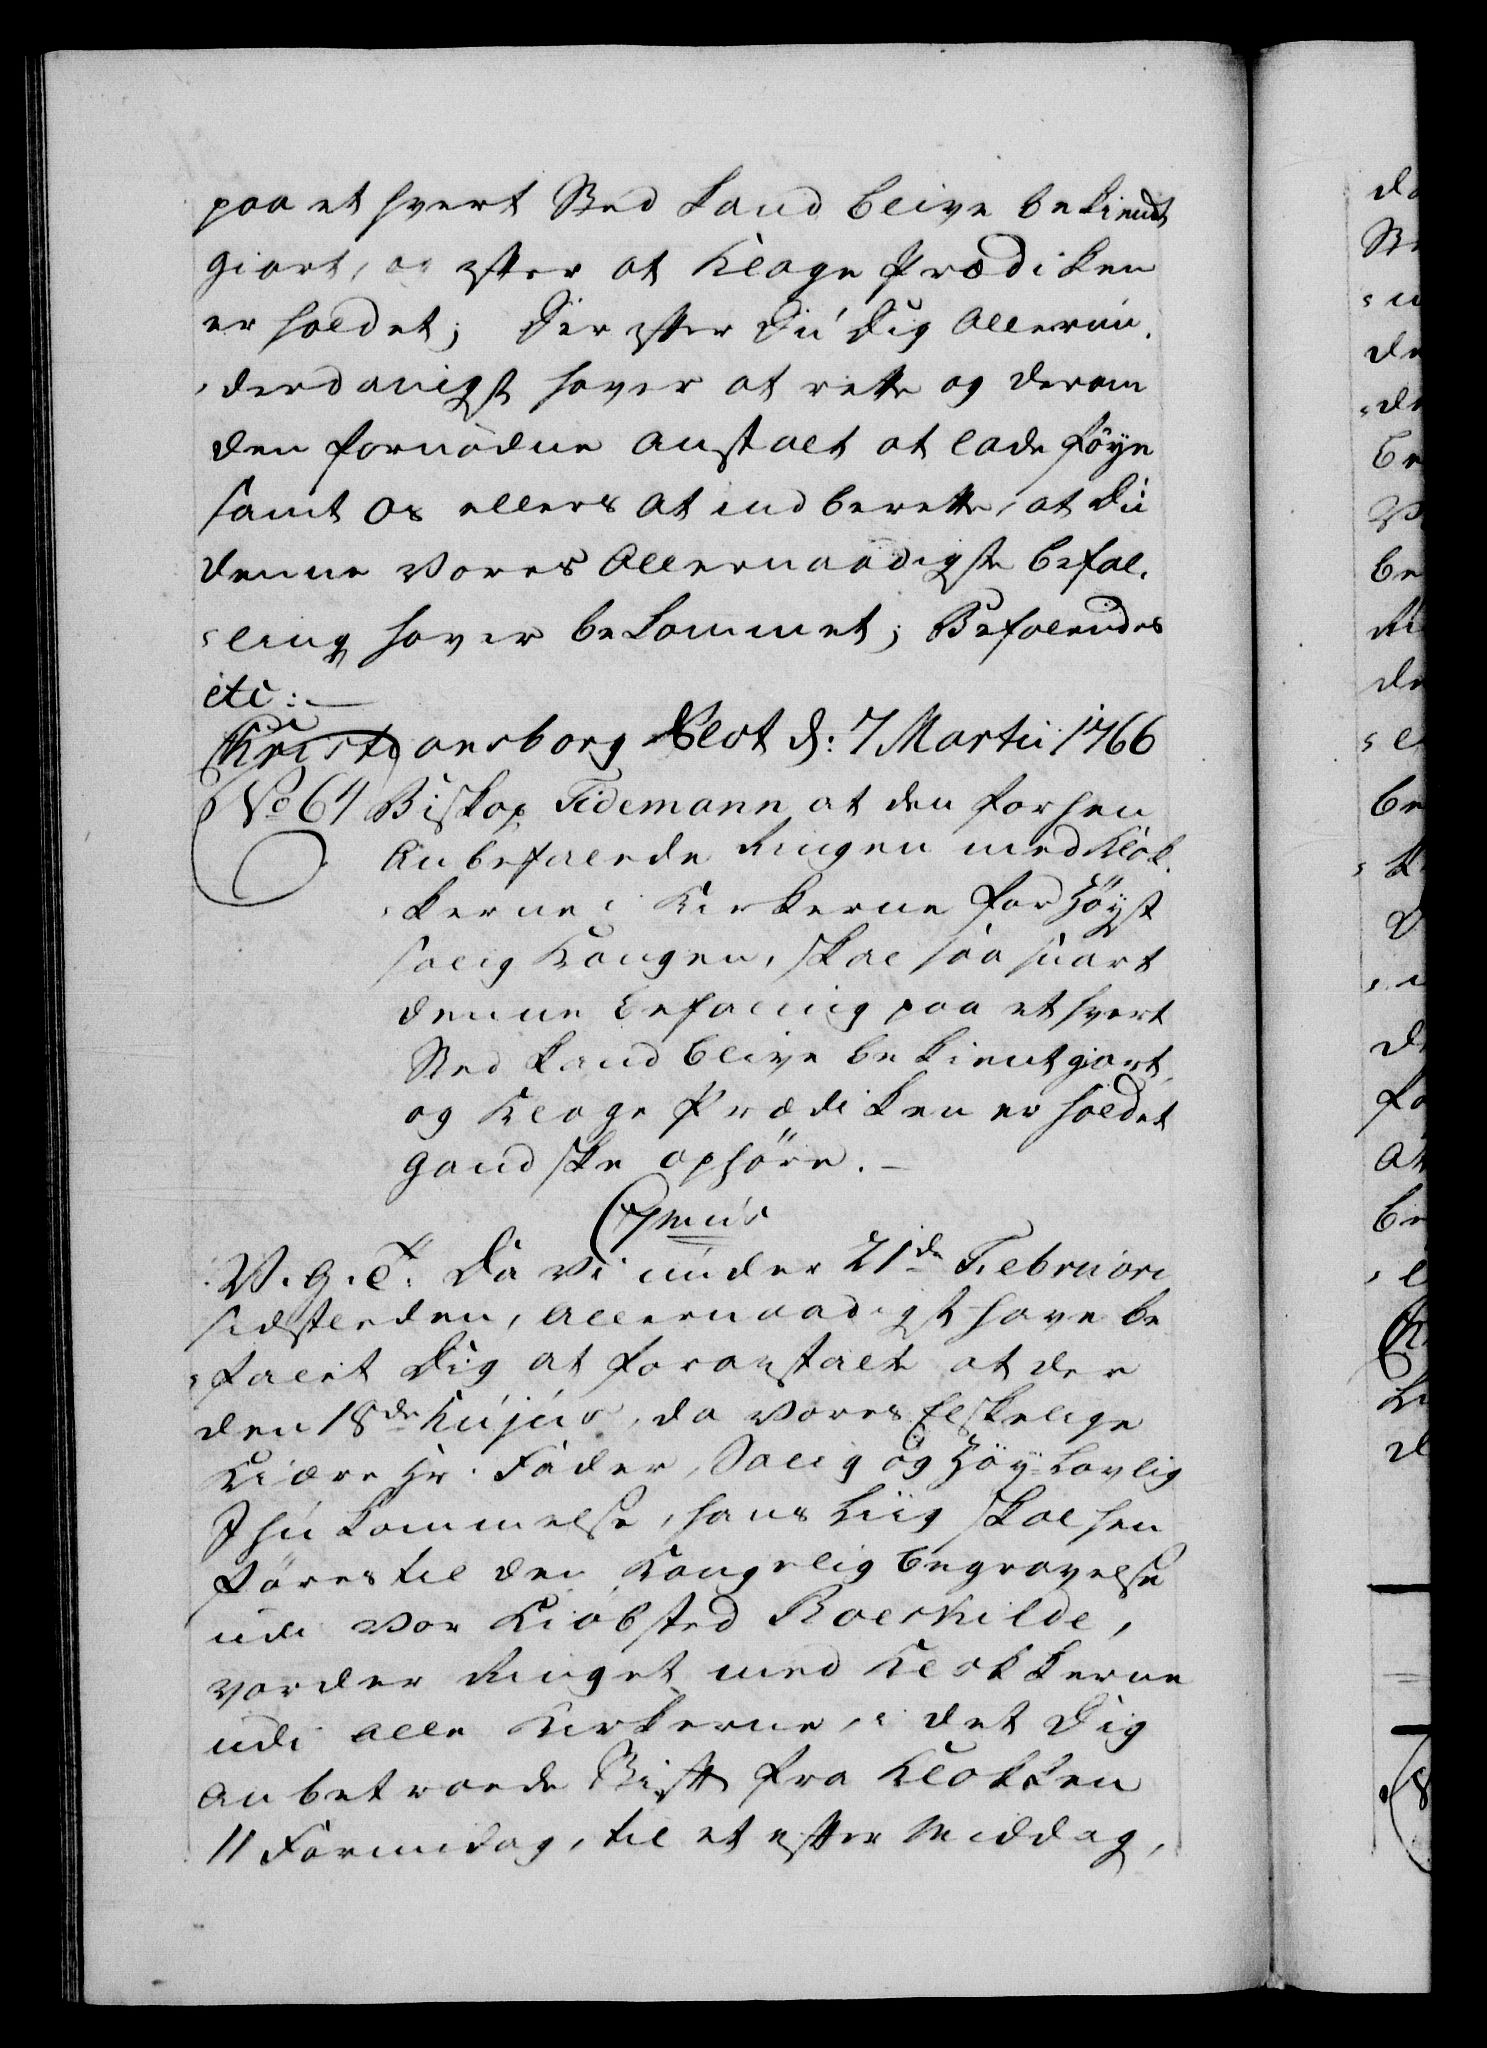 paa et hvert Sted kand blive bekiendt
giort, og efter at Klage Prædiken
er holdet; Der efter Du Dig Allerun-
-derdanigst haver at rette og derom
den fornødne anstalt at lade føye
samt Os ellers at indberette, at Du
denne Vores Allernaadigste befal-
-ling haver bekommet; Befalendes
etc: —
Christiansborg Slot d: 7 Martii 1766
No 64 Biskop Tidemann at den forhen
anbefalede Ringen med Klok-
-kerne i Kirkerne for Høyst
salig Kongen, skal saa snart
denne befaling paa et hvert
Sted kand blive bekientgiort,
og Klage Prædiken er holdet
gandske ophøre. —
C7mus
V. G. T. Da Vi under 21de Februari
sidstleden, allernaadigst have be
-falet Dig at foranstalte at der
den 18de hujus, da Vores Elskelige
Kiære Hr. Fader, Salig og Høy-Lovlig
Ihukommelse, hans Liig skal hen
føres til den Kongelig begravelse
udi Vor Kiøbsted Roeskilde,
vorder Ringet med Klokkerne
udi alle Kirkerne, i det Dig
anbetroede Stift fra Klokken
11 Formidag, til et efter Middag,